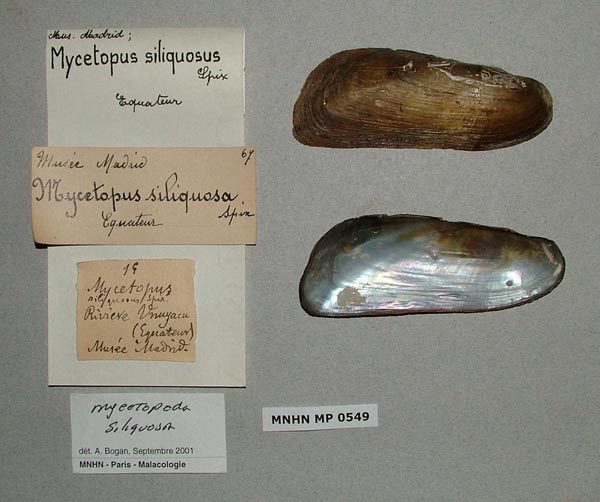 Mus. Madrid;
Mycetopus siliquosus
Spix
Equateur
Musée Madrid 67
Mycetopus siliquosa
Spix
Equateur
19
Mycetopus
siliquosus Spix.
Rivière
(Equateur)
Musée Madrid.
mycetopoda
siliquosa
dét. A. Bogan, Septembre 2001
MNHN - Paris - Malacologie
MNHN MP 0549